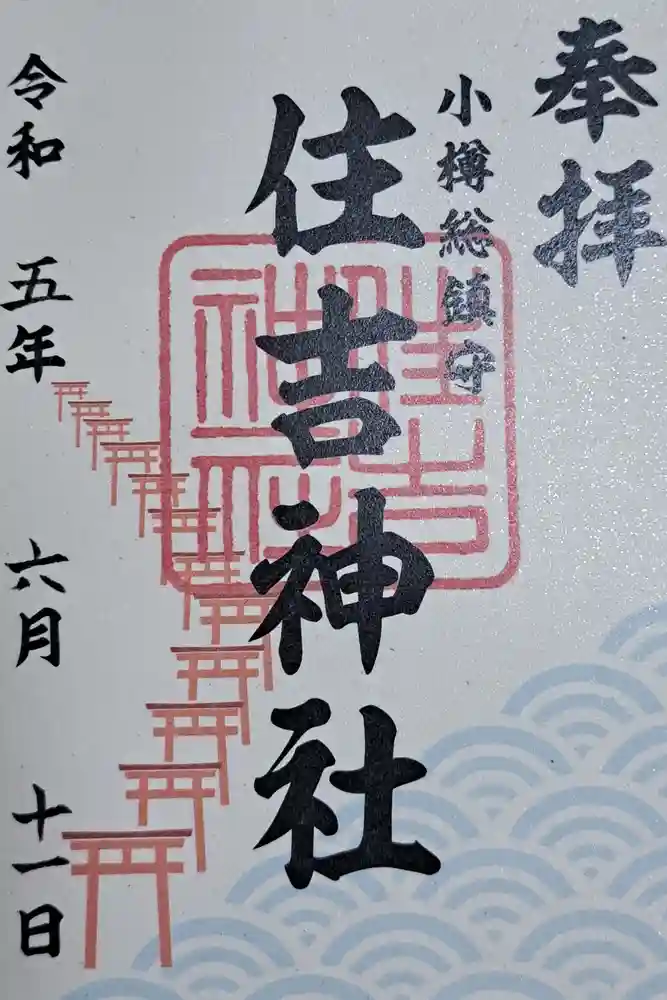 奉拝
小樽総鎮守
住吉神社
住吉
神社
令和五年六月十一日